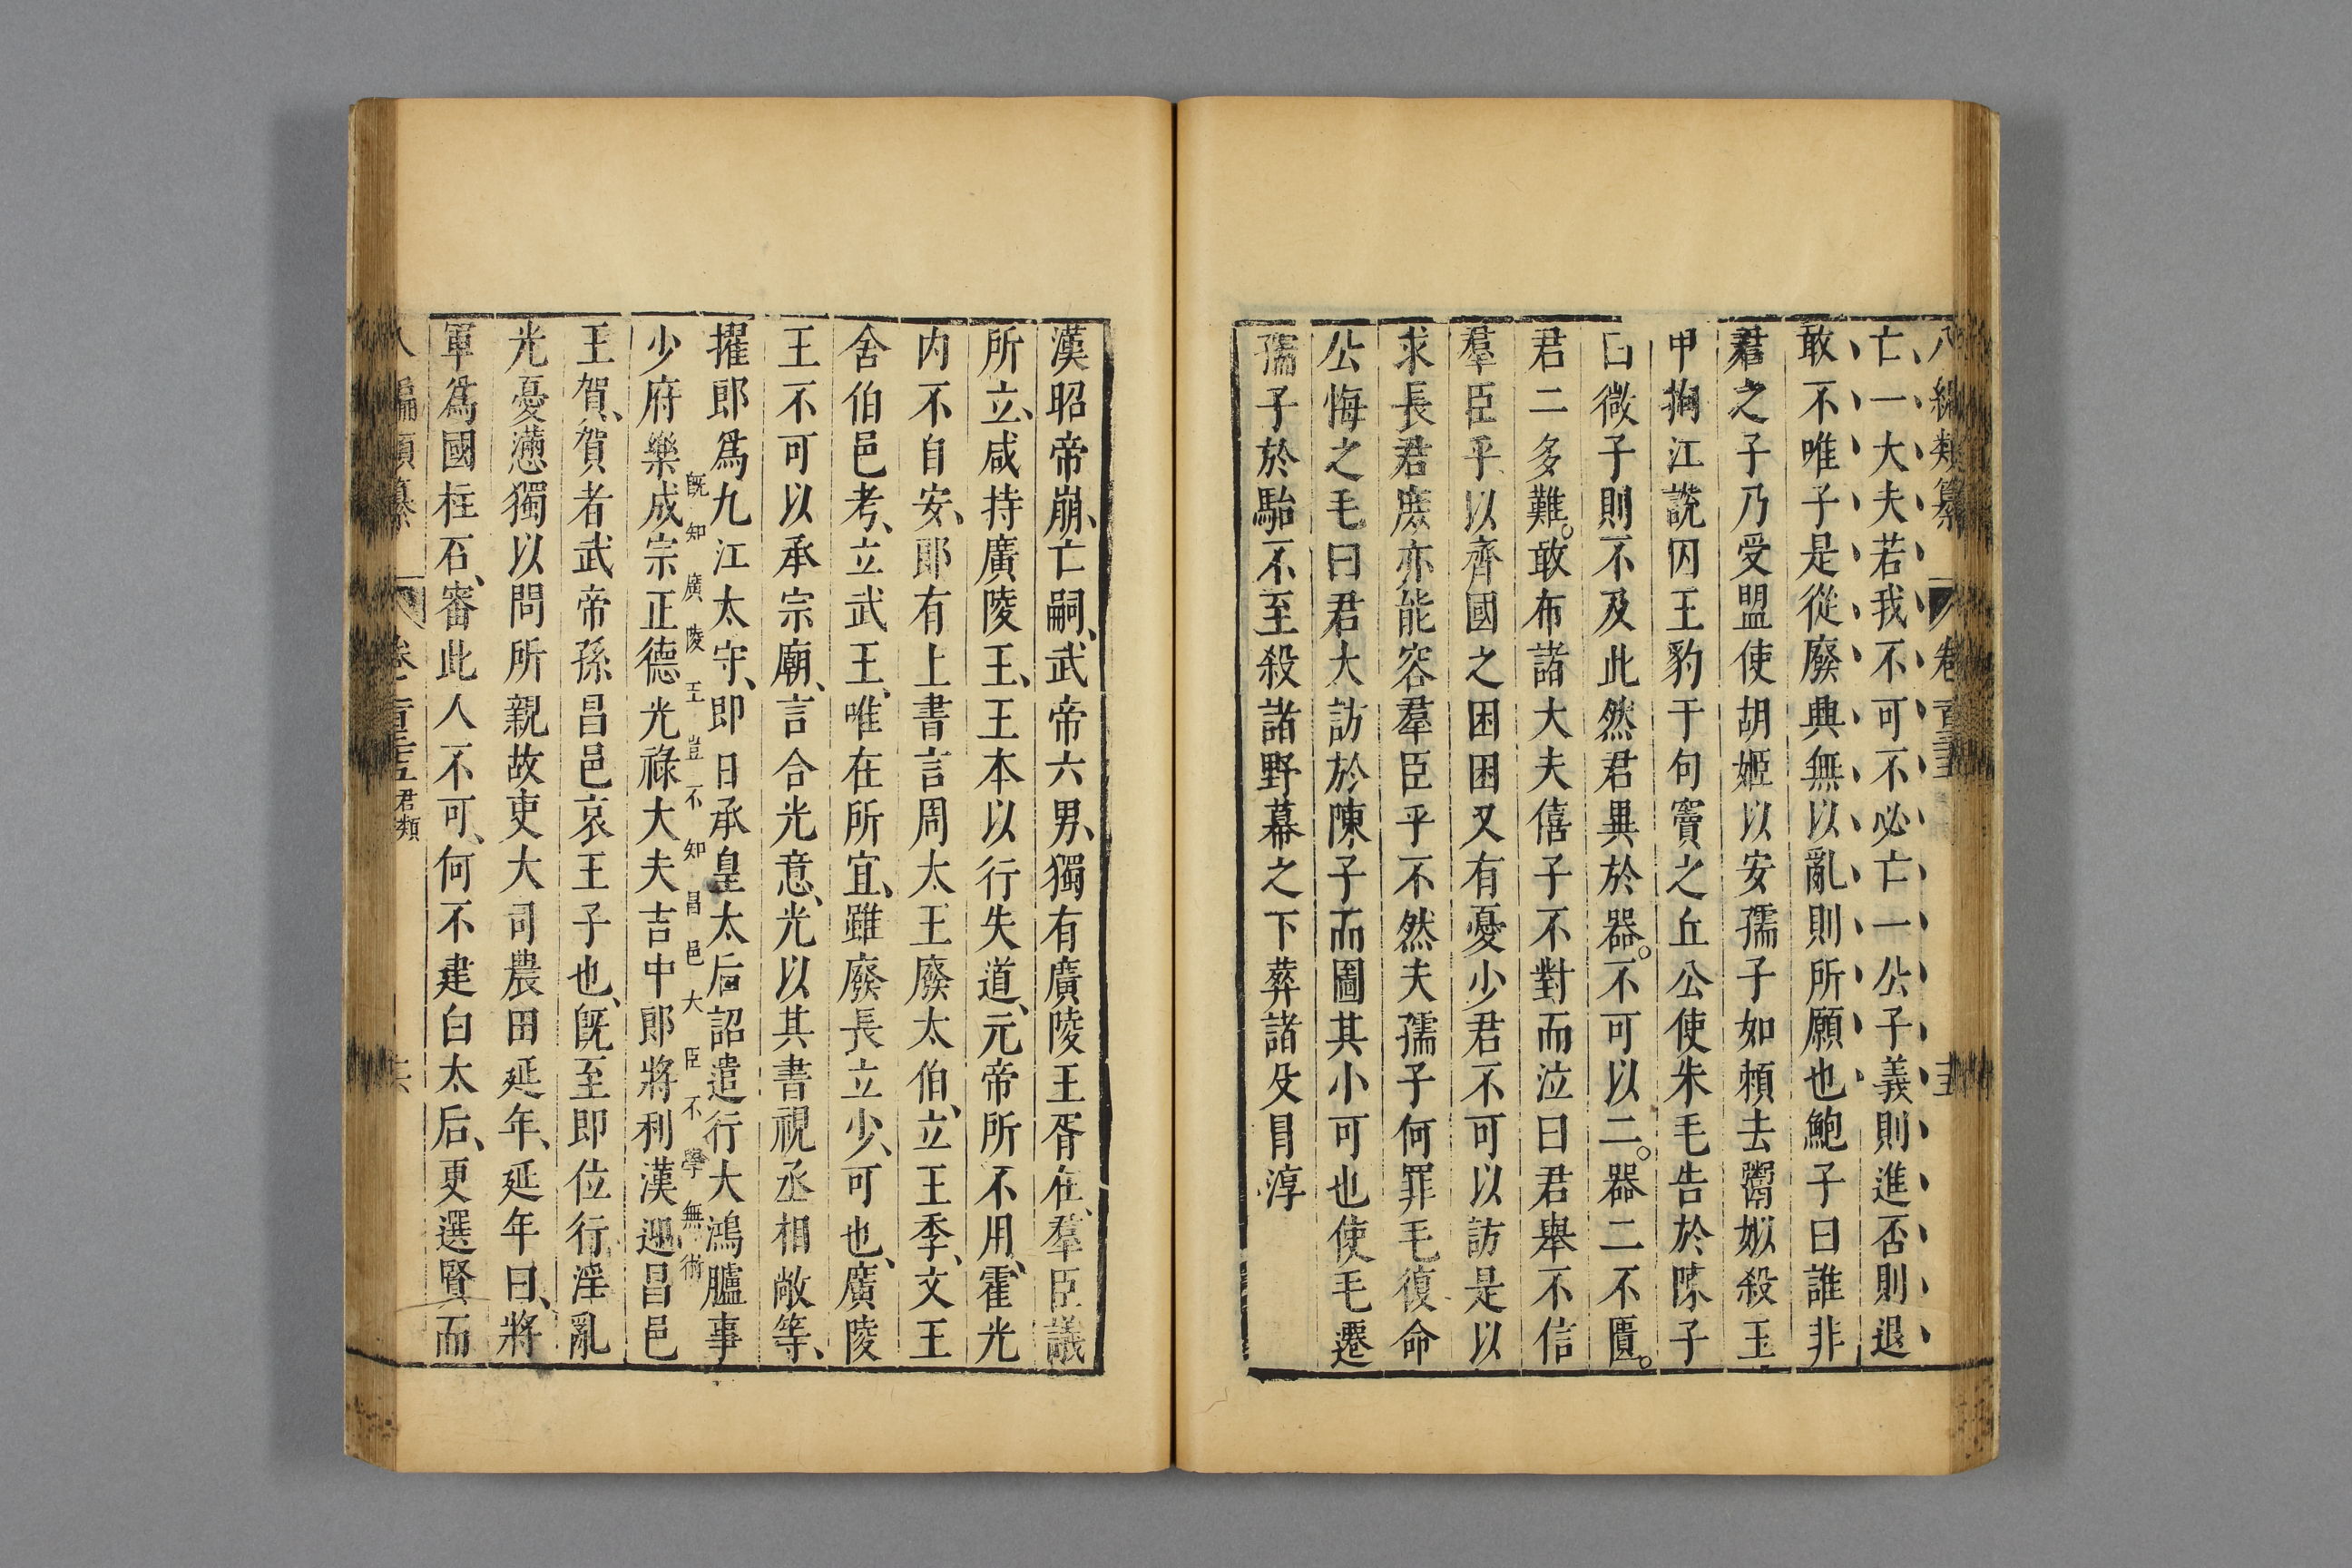 八編類纂 卷百三十五
亡一大夫若我不可不必亡一公子義則進否則退
敢不唯子是從廢典無以亂則所願也鮑子曰誰非
君之子乃受盟使胡姬以安孺子如賴去鬻姒殺王
甲拘江說囚王豹于句竇之丘公使朱毛告於陳子
曰微子則不及此然君異於器。不可以二。器二不匱。
君二多難。敢布諸大夫僖子不對而泣曰君舉不信
羣臣乎以齊國之困困又有憂少君不可以訪是以
求長君庶亦能容羣臣乎不然夫孺子何罪毛復命
公悔之毛曰君大訪於陳子而圖其小可也使毛遷
孺子於駘不至殺諸野幕之下葬諸殳冒淳
漢昭帝崩、亡嗣、武帝六男、獨有廣陵王胥在、羣臣議
所立、咸持廣陵王、王本以行失道、元帝所不用、霍光
內不自安、郎有上書言周太王廢太伯、立王季、文王
舍伯邑考、立武王、唯在所宜、雖廢長立少、可也、廣陵
王不可以承宗廟、言合光意、光以其書視丞相敞等、
擢郎爲九江太守、即日承皇太后詔遣行大鴻臚事
旣知廣陵王豈不知昌邑大臣不學無術
少府樂成宗正德光祿大夫吉中郎將利漢迎昌邑
王賀、賀者武帝孫昌邑哀王子也、旣至即位行淫亂
光憂懣獨以問所親故吏大司農田延年、延年曰、將
軍爲國柱石、審此人不可、何不建白太后、更選賢而
八編類纂 卷百三十五 君類